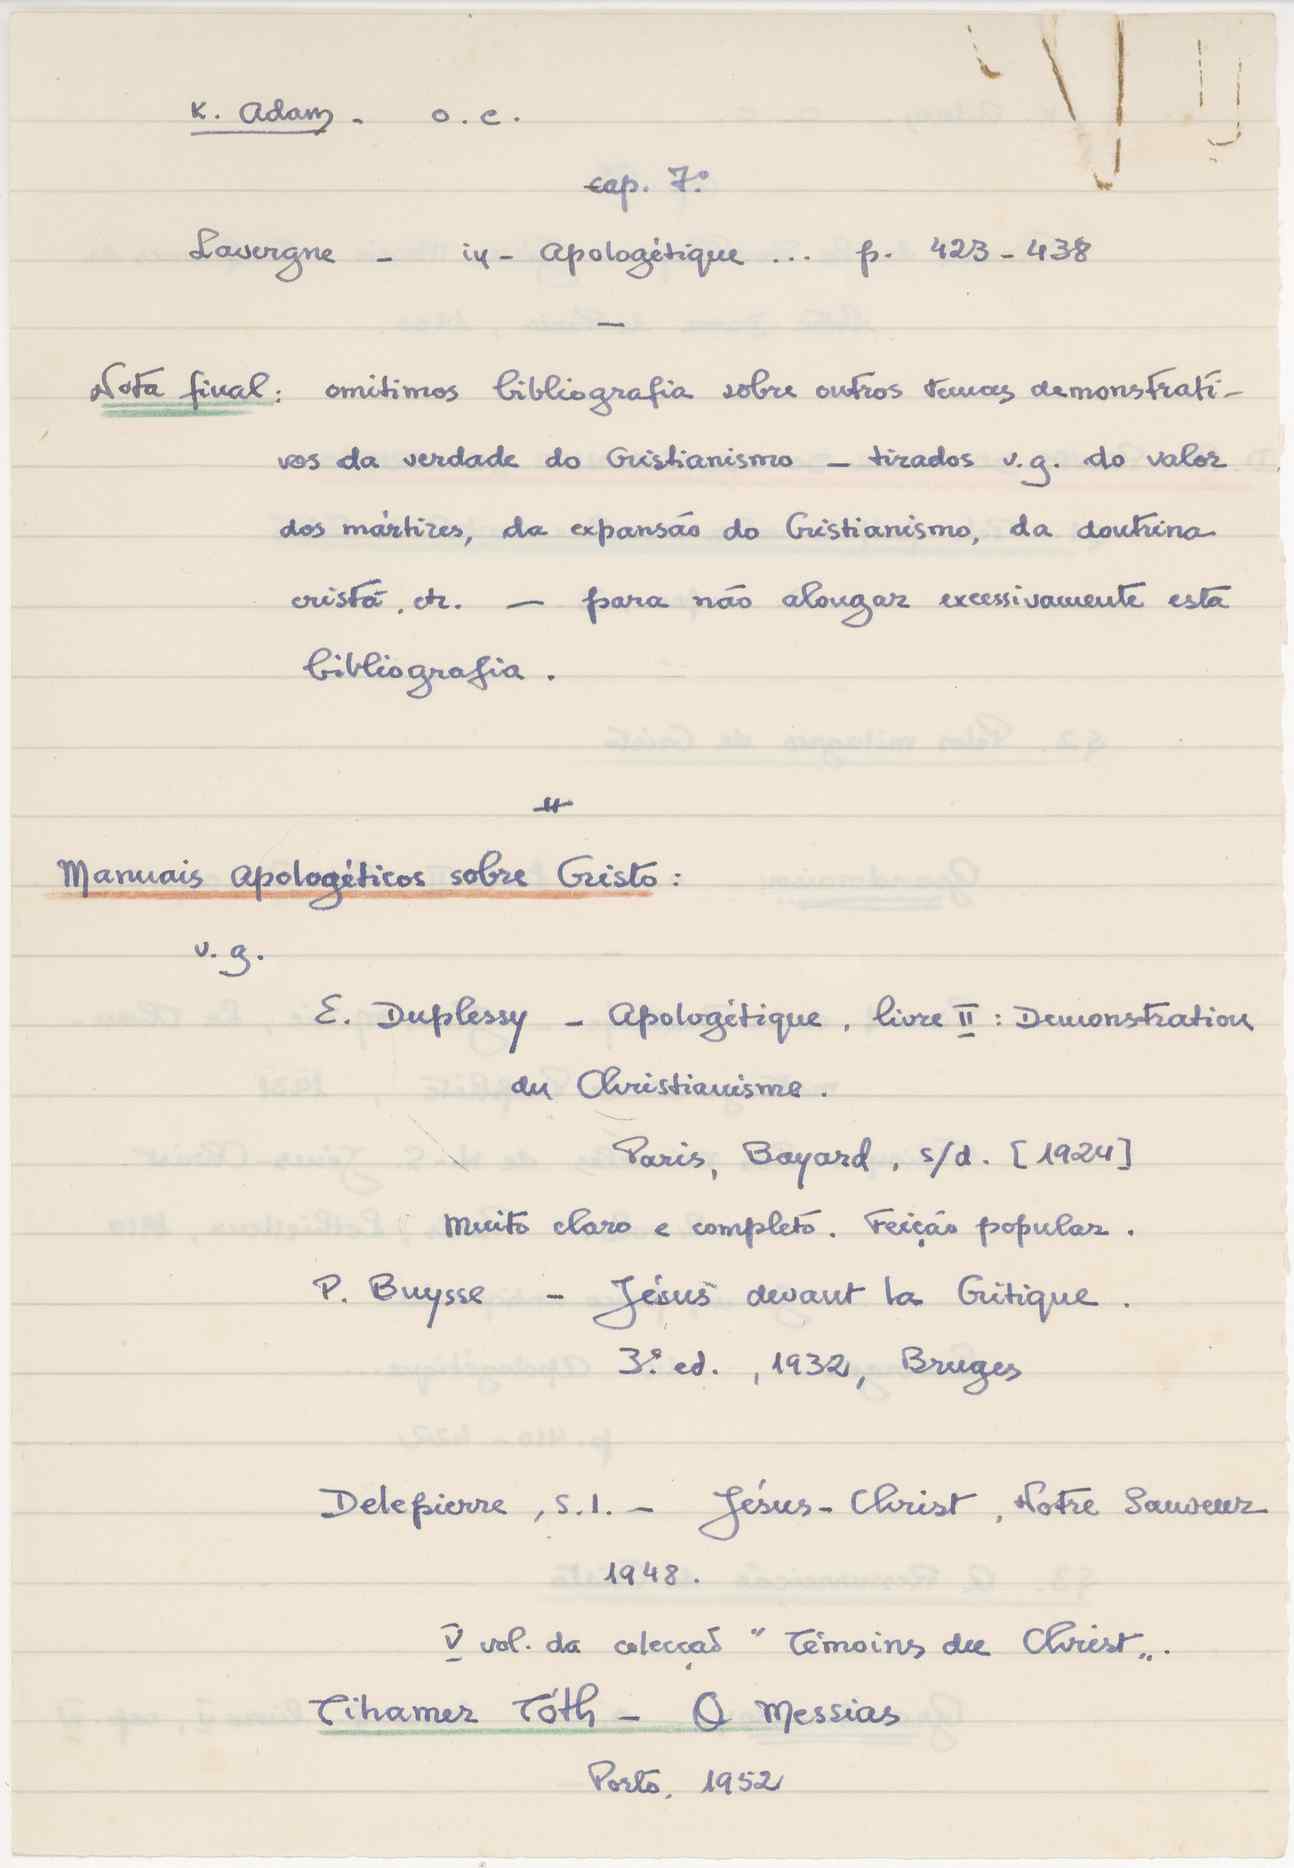 K. Adam - o.c.
cap. 7º
Lavergne - in - Apologétique ... p. 423-438
—
Nota final: omitimos bibliografia sobre outros temas demonstrati-
vos da verdade do Cristianismo — tirados v.g. do valor
dos mártires, da expansão do Cristianismo, da doutrina
cristã, etc. — para não alongar excessivamente esta
bibliografia.
Manuais apologéticos sobre Cristo:
v.g.
E. Duplessy - Apologétique, livre II: Demonstration
du Christianisme.
Paris, Bayard, s/d. [1924]
Muito claro e completo. Feição popular.
P. Buysse - Jésus devant la Critique.
3ª ed., 1932, Bruges
Delepierre, S.I. - Jésus-Christ, Notre Sauveur
1948.
V vol. da colecção "Témoins du Christ".
Tihamer Tóth - O Messias
Porto, 1952